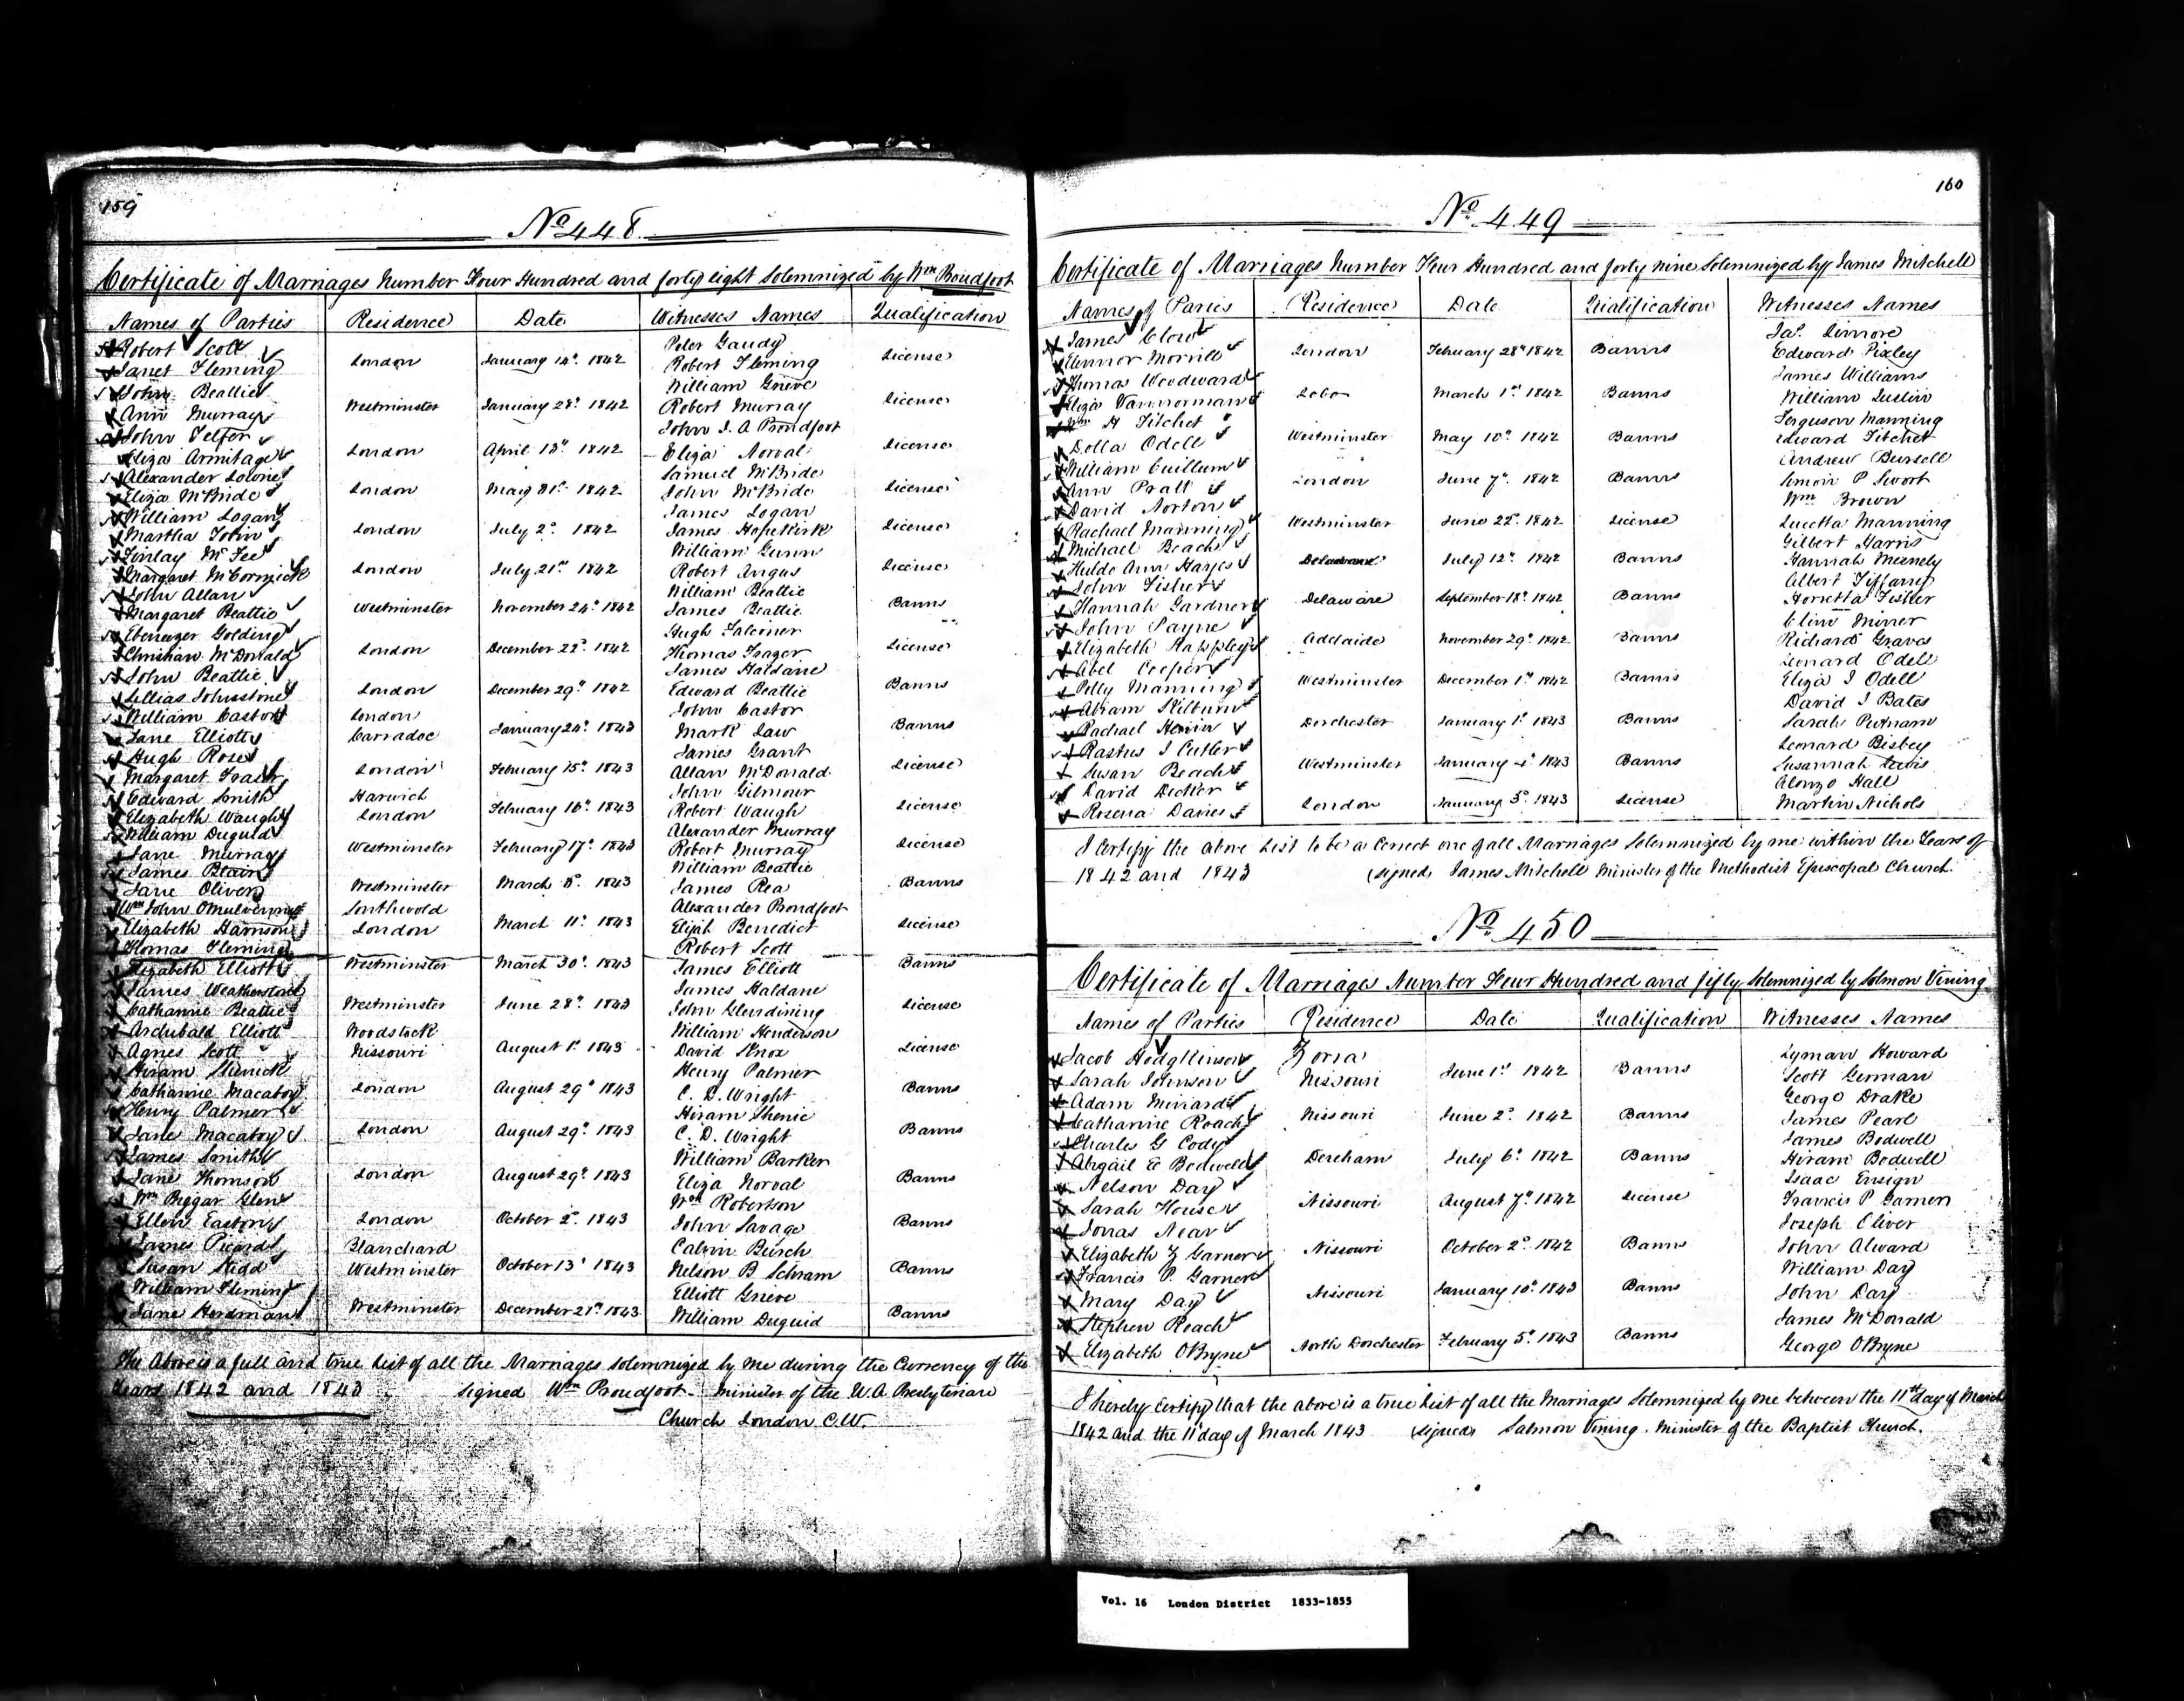 159
No 448
Certificate of Marriages Number Four Hundred and forty eight Solemnized by Wm Proudfoot
Names of Parties Residence Date Witnesses Names Qualification
Robert Scott Peter Gaudy
Janet Fleming London January 14th 1842 Robert Fleming License
John Beattie William Grieve
Ann Murray Westminster January 28th 1842 Robert Murray License
John Telfer John J. A Proudfoot
Eliza Armitage London April 13th 1842 Eliza Norval License
Alexander Samuel McBride
Eliza McBride London May 31st 1842 John McBride License
William Logan James Logan
Martha John London July 2d 1842 James Hopekirk License
Finlay McFee William Gunn
Margaret McCormick London July 21st 1842 Robert Angus License
John Allan William Beattie
Margaret Beattie Westminster November 24th 1842 James Beattie Banns
Ebenezer Golding Hugh Falconer
Christian McDonald London December 22d 1842 Thomas Frazer License
John Beattie James Haldane
Lillias Johnstone London December 29th 1842 Edward Beattie Banns
William Castor London John Castor
Jane Elliott Carradoc January 24th 1843 Mark Law Banns
Hugh Rose James Grant
Margaret London February 15th 1843 Allan McDonald License
Edward Smith Harwich John Gilmour
Elizabeth Waugh London February 16th 1843 Robert Waugh License
William Duguid Alexander Murray
Jane Murray Westminster February 17th 1843 Robert Murray License
James Blain William Beattie
Jane Oliver Westminster March 8th 1843 James Rea Banns
Wm John Southwold Alexander Proudfoot
Elizabeth Harrison London March 11th 1843 Elijah Benedict License
Thomas Fleming Robert Scott
Elizabeth Elliott Westminster March 30th 1843 James Elliott Banns
James Weatherston James Haldane
Catharine Beattie Westminster June 28th 1843 John Glendining License
Archibald Elliott Woodstock William Henderson
Agnes Scott Nissouri August 1st 1843 David Knox License
Hiram Henry Palmer
Catharine Macaboy London August 29th 1843 C. D. Wright Banns
Henry Palmer Hiram Shenic
Jane Macaboy London August 29th 1843 C. D. Wright Banns
James Smith William Barker
Jane Thomson London August 29th 1843 Eliza Norval Banns
Wm Biggar Glen Wm Robertson
Ellen Easton London October 2d 1843 John Savage Banns
James Picard Blanchard Calvin Burch
Susan Kidd Westminster October 13th 1843 Nelson B Schram Banns
William Fleming Elliott Grieve
Jane Herdman Westminster December 21st 1843 William Duguid Banns
The Above is a full and true List of all the Marriages solemnized by me during the Currency of the
Years 1842 and 1843 Signed Wm Proudfoot Minister of the U.A. Presbyterian
Church London C.W.
160
No 449
Certificate of Marriages Number Four Hundred and forty nine Solemnized by James Mitchell
Names of Paries Residence Date Qualification Witnesses Names
James Clow Jas.
Elennor Morrill London February 28th 1842 Banns Edward Pixley
Thomas Woodward James Williams
Eliza Vannorman Lobo March 1st 1842 Banns William
Wm H Fitchet Ferguson Manning
Dolla Odell Westminster May 10th 1842 Banns Edward Fitchet
William Cuillum Andrew Bussell
Ann Pratt London June 7th 1842 Banns Simon P Swoot
David Norton Wm Brown
Rachael Manning Westminster June 22d 1842 License Lucetta Manning
Michael Beach Gilbert Harris
Hulda Ann Hayes Delaware July 12th 1842 Banns Hannah Meenely
John Fisher Albert Tiffany
Hannah Gardner Delaware September 18th 1842 Banns Horsetta Fisher
John Payne Clim Minor
Elizabeth Happley Addlaide November 29th 1842 Banns Richard Graves
Abel Cooper Leonard Odell
Polly Manning Westminster December 1st 1842 Banns Eliza J Odell
Abram Kilburn David J Bates
Rachael Dorchester January 1st 1843 Banns Sarah Putnam
Rastus J Cutler Leonard Bisbey
Susan Beach Westminster January 4th 1843 Banns Susannah Lewis
David Decker Alonzo Hall
Rosena Davies London January 5th 1843 License Martin Nichols
I Certify the above List to be a Correct one of all Marriages Solemnized by me within the Years of
1842 and 1843 (signed) James Mitchell Minister of the Methodist Episcopal Church.
No 450
Certificate of Marriages Number Four Hundred and fifty Solemnized by Solmon Vining
Names of Parties Residence Date Qualification Witnesses Names
Jacob Hodgkinson Zorra Lyman Howard
Sarah Johnson Nissouri June 1st 1842 Banns Scott German
Adam Minard George Drake
Catharine Roach Nissouri June 2d 1842 Banns James Pearl
Charles G Cody James Bodwell
Abigail E Bodwell Dereham July 6th 1842 Banns Hiram Bodwell
Nelson Day Isaac Ensign
Sarah House Nissouri August 7th 1842 License Francis P Garner
Jonas Near Joseph Oliver
Elizabeth Z Garner Nissouri October 2d 1842 Banns John Alward
Francis P. Garner William Day
Mary Day Nissouri January 10th 1843 Banns John Day
Stephen Roach James McDonald
Elizabeth OBryne North Dorchester February 5th 1843 Banns George OBryne
I hereby Certify that the above is a true List of all the Marriages Solemnized by me between the 11th day of March
1842 and the 11th day of March 1843 (signed) Salmon Vining. Minister of the Baptist Church.
Vol. 16 London District 1833-1855